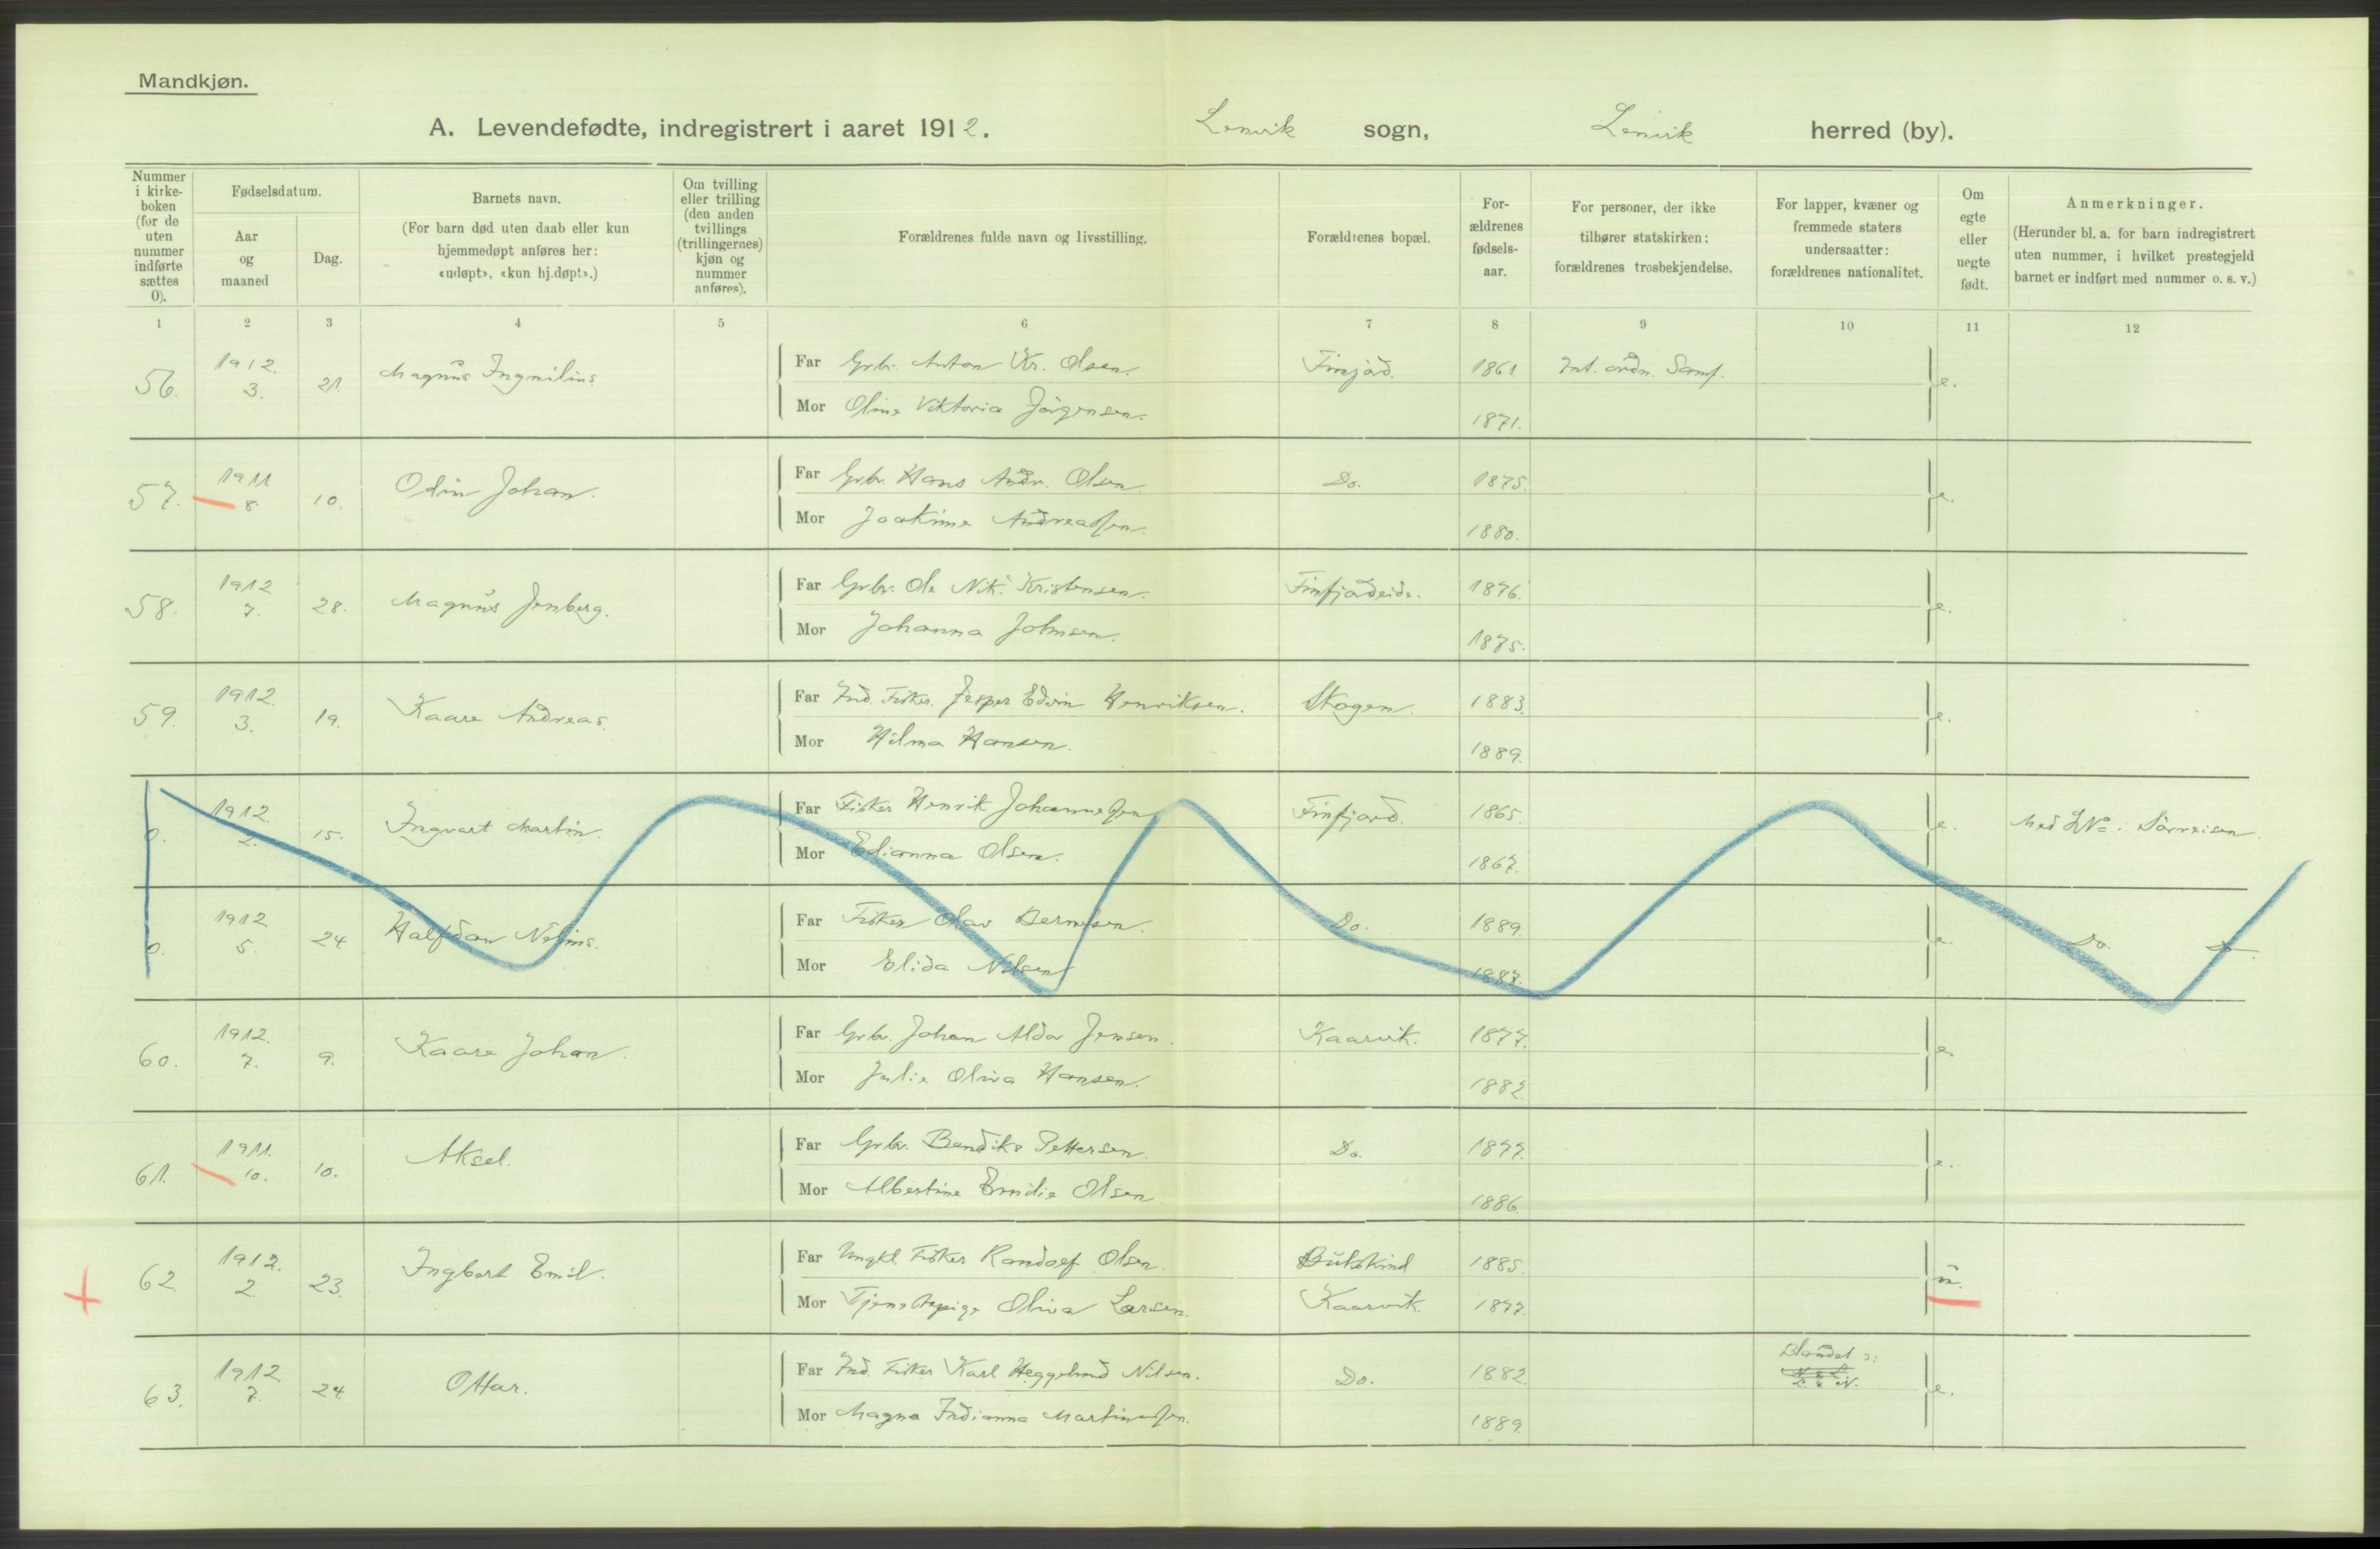 Mandkjøn.
A. Levendefødte, indregistrert i aaret 1912. Lenvik sogn, Lenvik herred (by).
Nummer i kirkeboken (for de uten nummer indførte sættes 0).
Fødselsdatum.
Aar og maaned
Dag.
Barnets navn.
(For barn død uten daab eller kun hjemmedøpt anføres her: «udøpt», «kun hj.døpt».)
Om tvilling eller trilling (den anden tvillings (trillingernes) kjøn og nummer anføres).
Forældrenes fulde navn og livsstilling.
Forældrenes bopæl.
Forældrenes fødselsaar.
For personer, der ikke tilhører statskirken: forældrenes trosbekjendelse.
For lapper, kvæner og fremmede staters undersaatter: forældrenes nationalitet.
Om egte eller uegte født.
Anmerkninger.
(Herunder bl. a. for barn indregistrert uten nummer, i hvilket prestegjeld barnet er indført med nummer o. s. v.)
1 2 3 4 5 6 7 8 9 10 11 12
56. 1912. 3. 21. Magnus Ingmilius
Far Grbr. Anton Kr. Olsen. Finfjord. 1861 Int. ordn. Samf. e.
Mor Oline Viktoria Jörgensen. 1871.
57. 1911 8. 10. Odin Johan.
Far Grbr. Hans Andr. Olsen. Do. 1875. e.
Mor Joakime Andreassen. 1880.
58. 1912 7. 28. Magnus Jenberg.
Far Grbr. Ole Nik. Kristensen. Finfjordeide. 1876. e.
Mor Johanna Johnsen. 1875.
59. 1912. 3. 19. Kaare Andreas.
Far Ind. Fisker. Jesper Edvin Henriksen. Skogen. 1883. e.
Mor Hilma Hansen. 1889.
0. 1912. 2. 15. Ingvart Martin.
Far Fisker Henrik Johannessen Finfjord. 1865. e. Med No: Sörreisen.
Mor Edianna Olsen. 1867.
0. 1912 5. 24 Halfdan Nelius.
Far Fisker Olav Berntsen. Do. 1889. e. Do. Do.
Mor Elida Nilsen 1887.
60. 1912. 7. 9. Kaare Johan.
Far Grbr. Johan Aldor Jensen. Kaarvik. 1877. e.
Mor Julie Oliva Hansen. 1882.
61. 1911. 10. 10. Aksel.
Far Grbr. Bendiks Pettersen. Do. 1877. e.
Mor Albertine Emilie Olsen. 1886.
62. 1912. 2. 23. Ingbert Emil.
Far Ungkl. Fisker Randolf Olsen. 1885. u.
Mor Tjenestepige Oliva Larsen. Kaarvik. 1877.
63. 1912 7. 24. Ottar.
Far Ind. Fisker Karl Heggelund Nilsen. Do. 1882. Blandet e.
Mor Magna Indianna Martinussen. 1889.